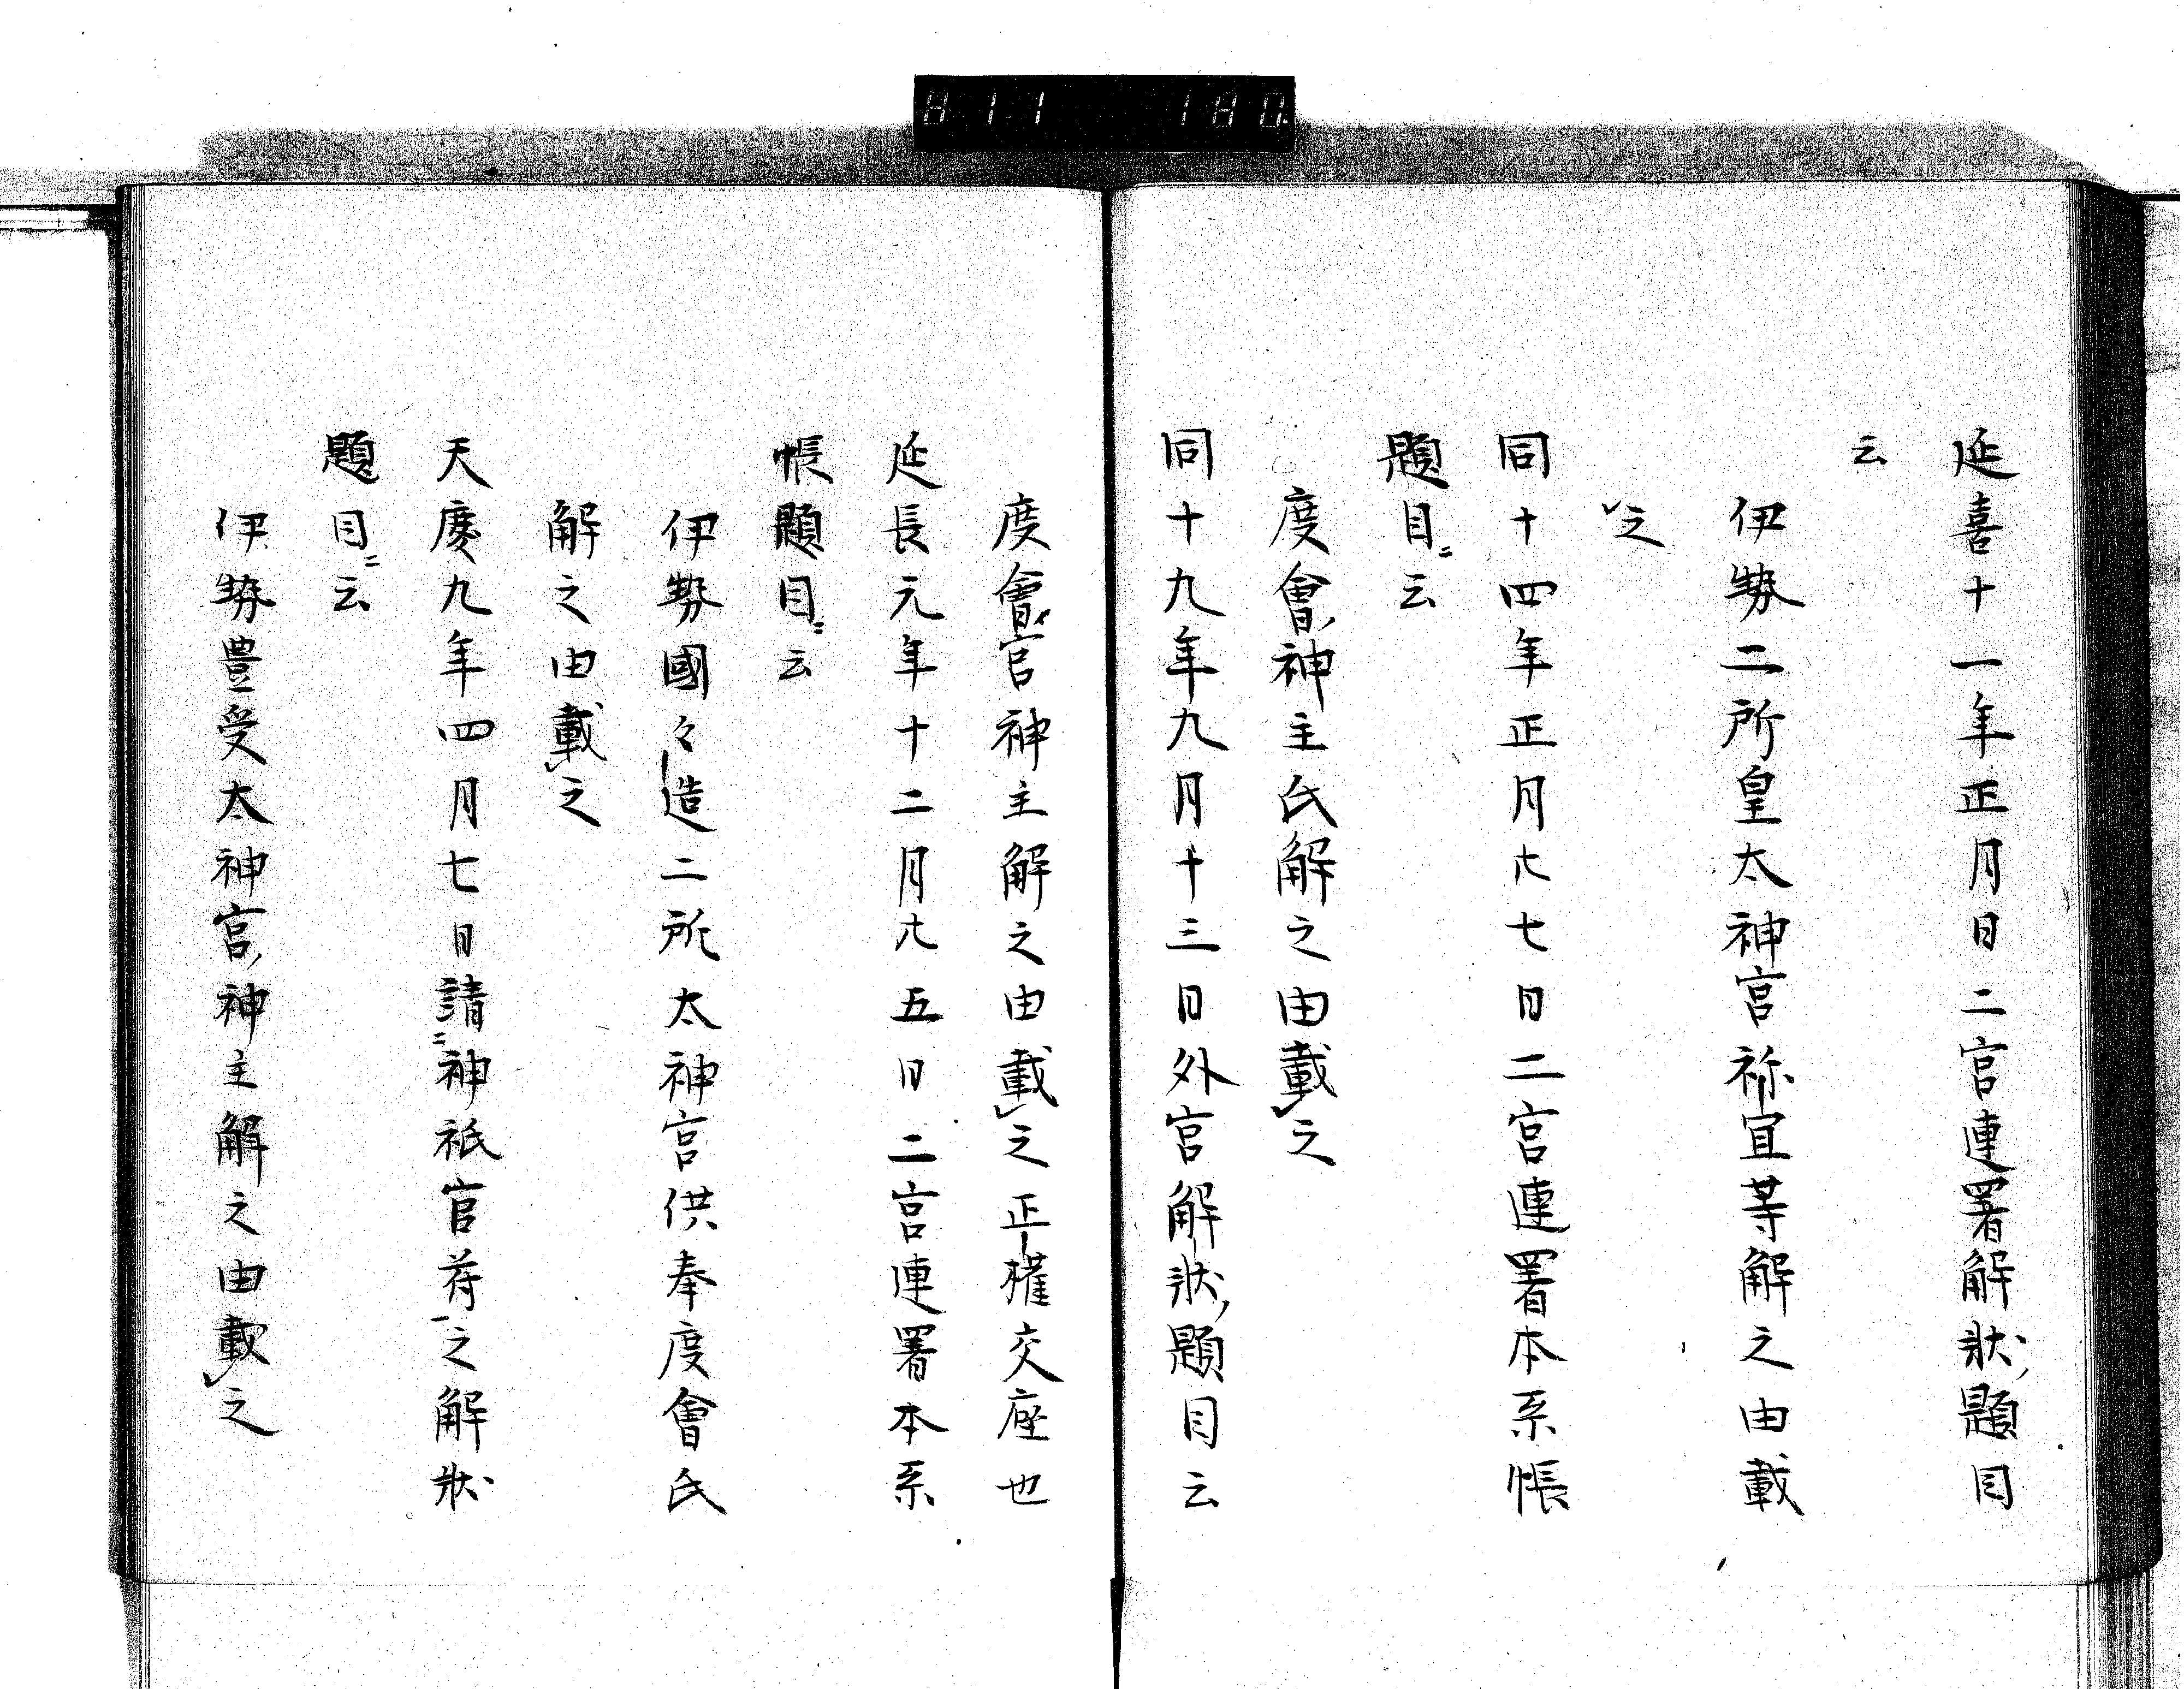 811 180
延喜十一年正月日二宮連署解状題目
云
伊勢二所皇太神宮祢宜等解之由載
之
同十四年正月廿七日二宮連署本系帳
題目云
度會神主氏解之由載之
同十九年九月十三日外宮解状題目云
度會宮神主解之由載之正權交座也
延長元年十二月廿五日二宮連署本系
帳題目云
伊勢國々造二所太神宮供奉度會氏
解之由載之
天慶九年四月七日請神祇官符之解状
題目云
伊勢豊受太神宮神主解之由載之